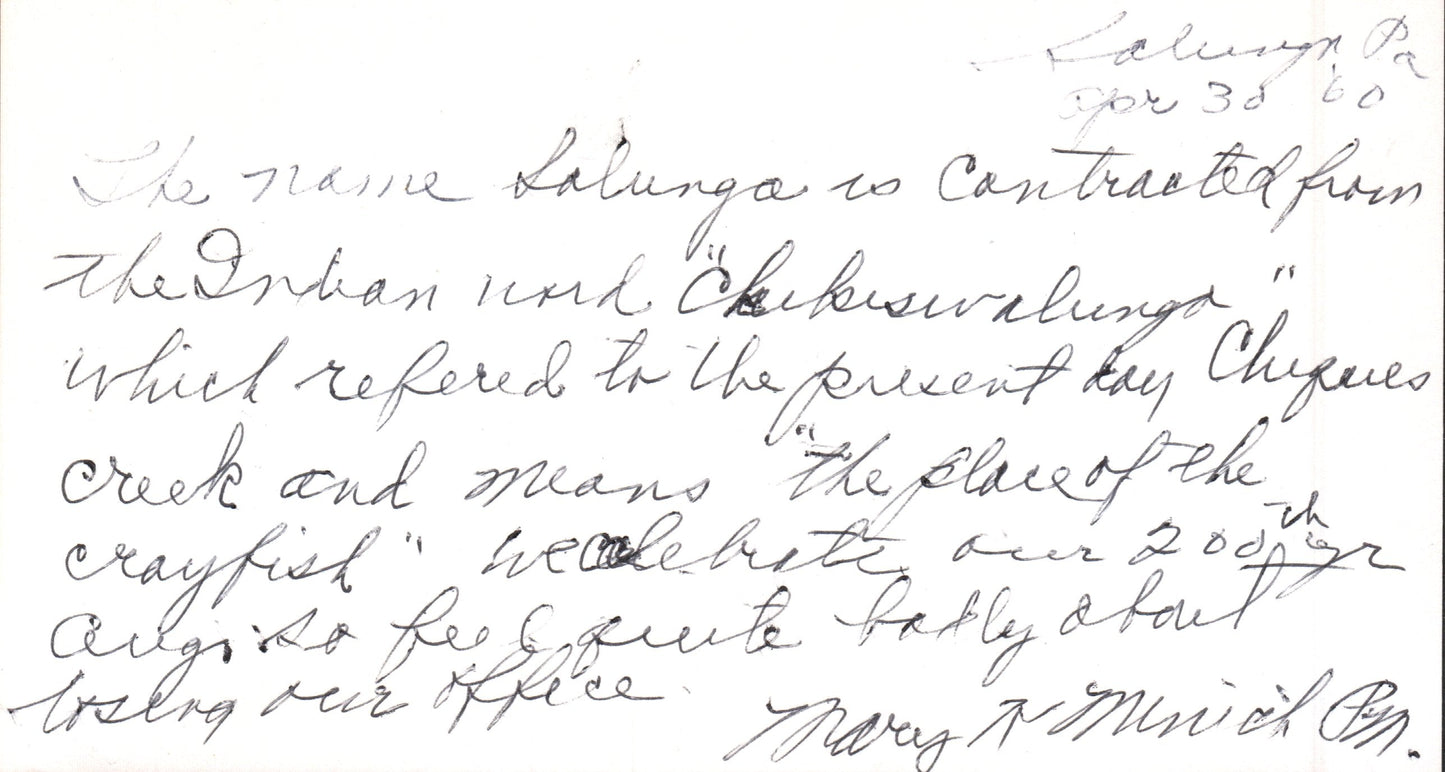 Salunga, Pa
Apr 30 '60
The name Salunga is contracted from
the Indian word "Chickiswalunga"
which refered to the present day Chiques
creek and means "the place of the
crayfish" we celebrate our 200th yr
Aug. so feel quite badly about
losing our office.
Mary N Minnich P.M.